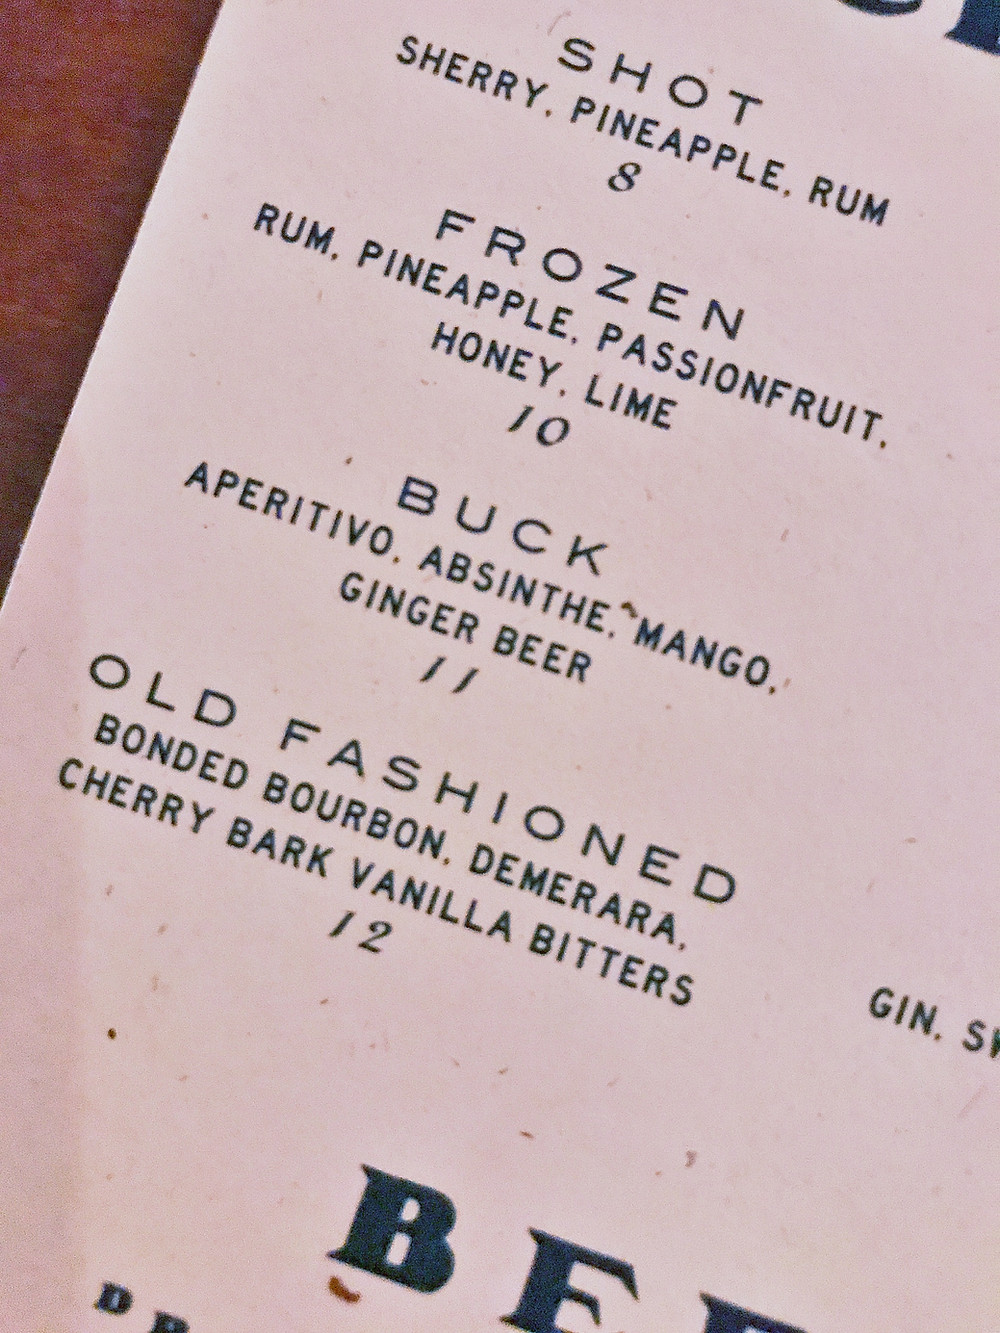 SHOT
SHERRY, PINEAPPLE, RUM
8
FROZEN
RUM, PINEAPPLE, PASSIONFRUIT,
HONEY, LIME
10
BUCK
APERITIVO, ABSINTHE, MANGO,
GINGER BEER
11
OLD FASHIONED
BONDED BOURBON, DEMERARA,
CHERRY BARK VANILLA BITTERS
12
GIN,